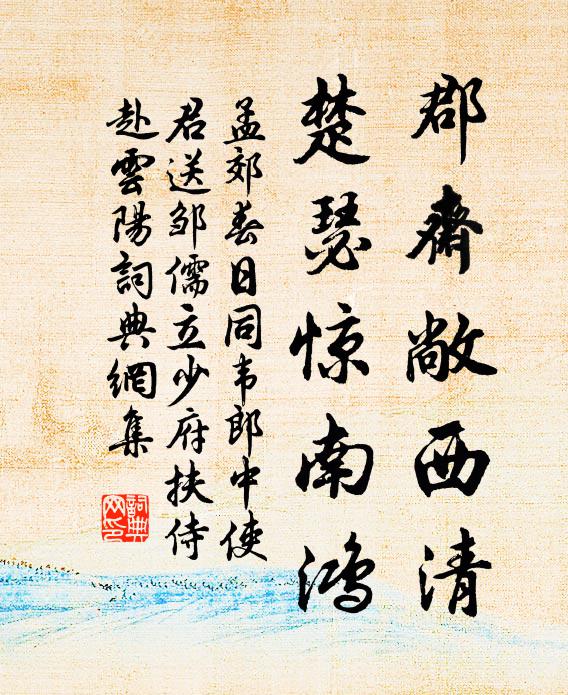 郡斋敞西清
楚瑟惊南鸿
孟郊春日同韦郎中使
君送邹儒立少府扶侍
赴雲陽詞典網集
詞典网印